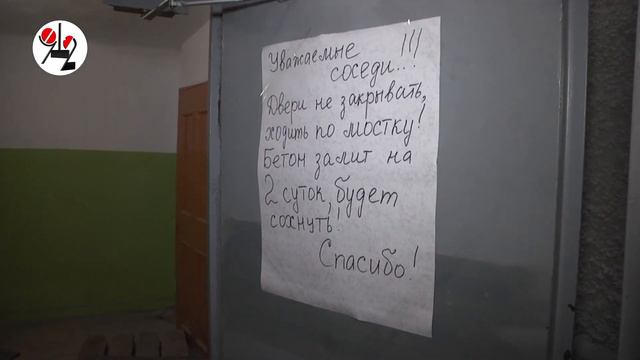 Уважаемые !!!
соседи...
Двери не закрывать,
ходить по мостку!
Бетон залит на
2 суток, будет
сохнуть!
Спасибо!